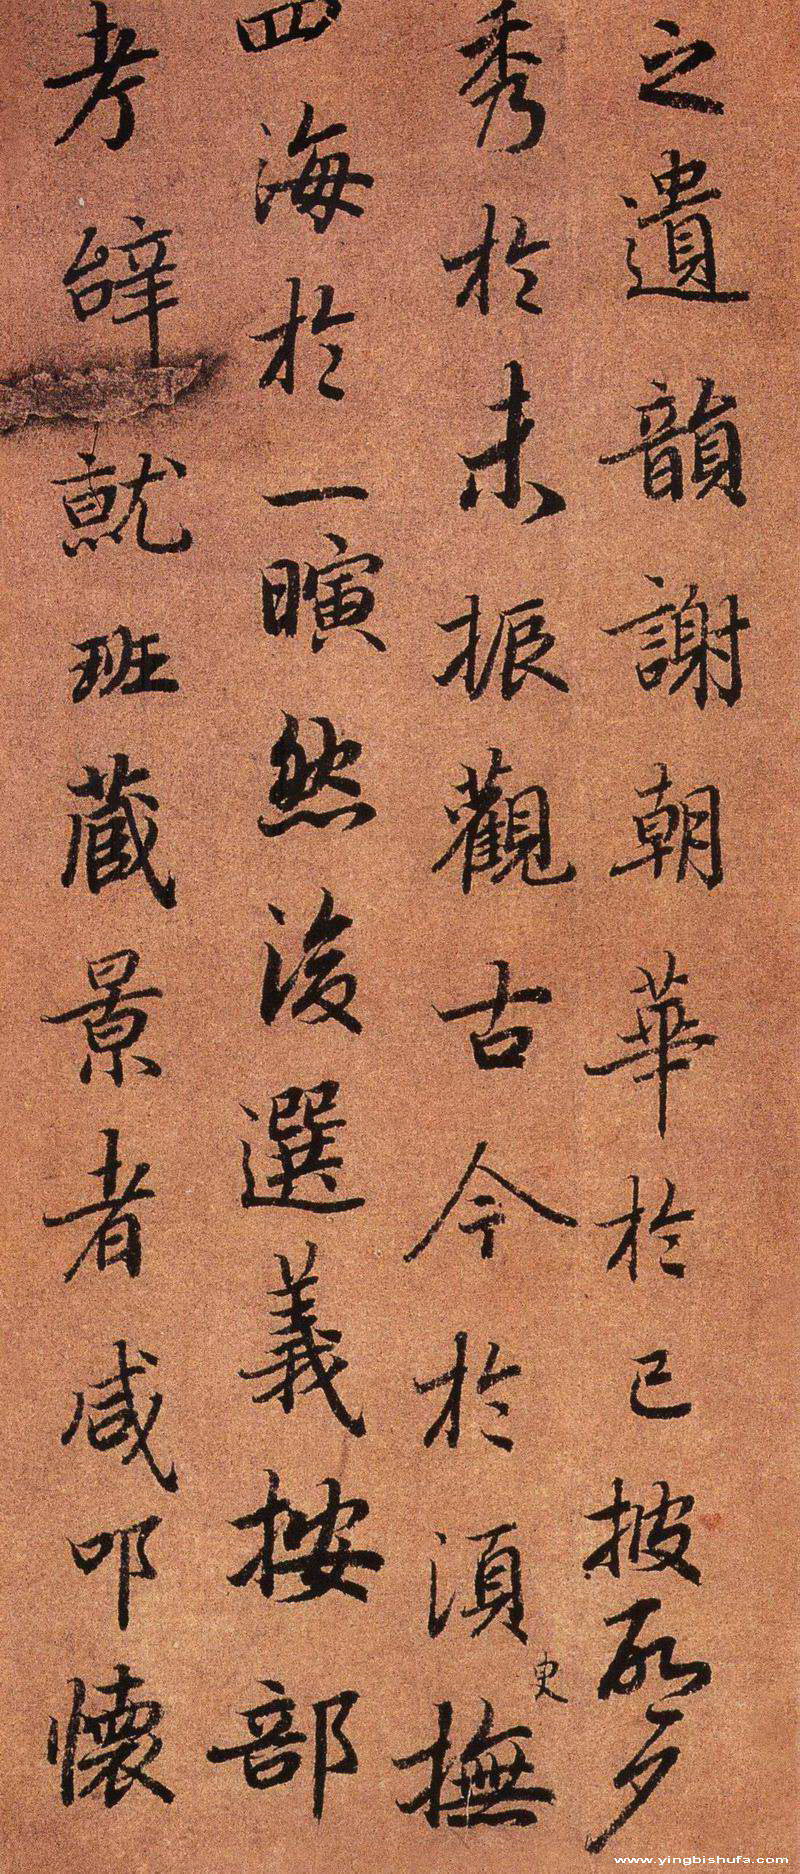 之遺韻謝朝華於已披啓夕
秀於未振觀古今於須撫
史
四海於一瞚然後選義按部
考辭就班藏景者咸叩懷
www.yingbishufa.com